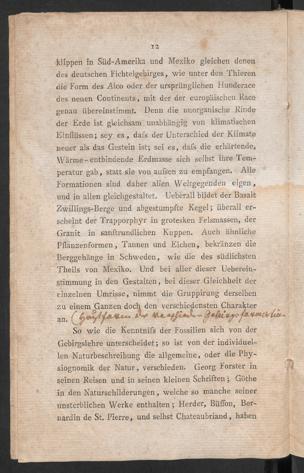 12
klippen in Süd-Amerika und Mexiko gleichen denen
des deutschen Fichtelgebirges, wie unter den Thieren
die Form des Alco oder der ursprünglichen Hunderace
des neuen Continents, mit der der europäischen Race
genau übereinstimmt. Denn die unorganische Rinde
der Erde ist gleichsam unabhängig von klimatischen
Einflüssen; sey es, daſs der Unterschied der Klimate
neuer als das Gestein ist; sei es, daſs die erhärtende,
Wärme-entbindende Erdmasse sich selbst ihre Tem-
peratur gab, statt sie von auſsen zu empfangen. Alle
Formationen sind daher allen Weltgegenden eigen,
und in allen gleichgestaltet. Ueberall bildet der Basalt
Zwillings-Berge und abgestumpfte Kegel; überall er-
scheint der Trapporphyr in grotesken Felsmassen, der
Granit in sanftrundlichen Kuppen. Auch ähnliche
Pflanzenformen, Tannen und Eichen, bekränzen die
Berggehänge in Schweden, wie die des südlichsten
Theils von Mexiko. Und bei aller dieser Ueberein-
stimmung in den Gestalten, bei dieser Gleichheit der
einzelnen Umrisse, nimmt die Gruppirung derselben
zu einem Ganzen doch den verschiedensten Charakter
an.
So wie die Kenntniſs der Fossilien sich von der
Gebirgslehre unterscheidet; so ist von der individuel-
len Naturbeschreibung die allgemeine, oder die Phy-
siognomik der Natur, verschieden. Georg Forster in
seinen Reisen und in seinen kleinen Schriften; Göthe
in den Naturschilderungen, welche so manche seiner
unsterblichen Werke enthalten; Herder, Büffon, Ber-
nardin de St. Pierre, und selbst Chateaubriand, haben